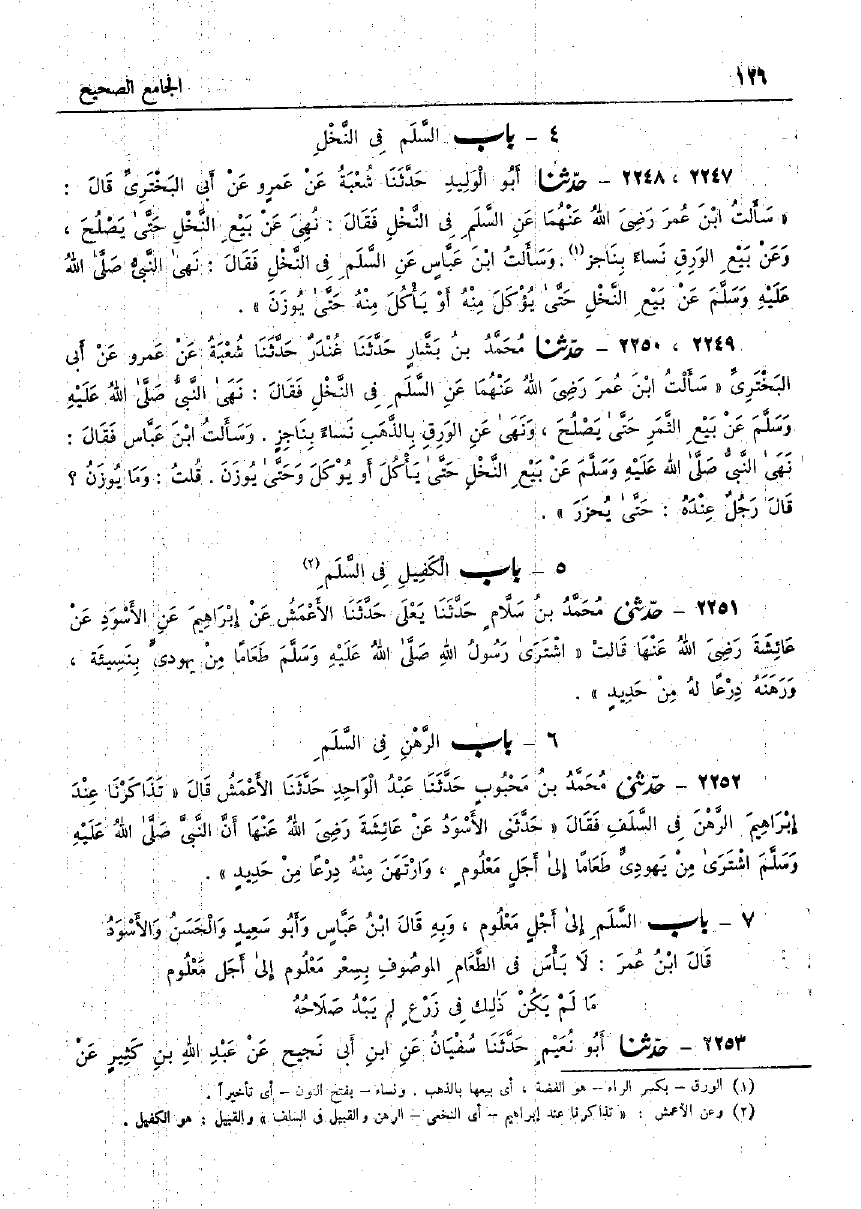 ١٢٦
الجامع الصحيح
٤ – باب السَّلَمِ فِى النَّخْلِ
٢٢٤٧ ، ٢٢٤٨ – حدّثنا أَبُو الْوَلِيدِ حَدَّثَنَا شُعْبَةُ عَنْ عَمرٍو عَنْ أَبِى البَخْتَرِىِّ قَالَ :
« سَأَلتُ ابْنَ عُمَرَ رَضِىَ اللهُ عَنْهُمَا عَنِ السَّلَمِ فِى النَّخْلِ فَقَالَ : نُهِىَ عَنْ بَيْعِ النَّخْلِ حَتَّىٰ يَصْلُحَ ،
وَعَنْ بَيْعِ الوَرِقِ نَسَاءً بِنَاجِزٍ(١) . وَسَأَلتُ ابْنَ عَبَّاسٍ عَنِ السَّلَمِ فِى النَّخْلِ فَقَالَ : نَهىٰ النَّبِىُّ صَلَّىٰ اللهُ
عَلَيْهِ وَسَلَّمَ عَنْ بَيْعِ النَّخْلِ حَتَّىٰ يُؤْكَلَ مِنْهُ أَوْ يَأْكُلَ مِنْهُ حَتَّىٰ يُوزَنَ » .
٢٢٤٩ ، ٢٢٥٠ – حدّثنا مُحَمَّدُ بنُ بَشَّارٍ حَدَّثَنَا غُنْدَرٌ حَدَّثَنَا شُعْبَةُ عَنْ عَمرو عَنْ أَبِى
البَخْتَرِىِّ « سَأَلْتُ ابْنَ عُمَرَ رَضِىَ اللهُ عَنْهُمَا عَنِ السَّلَمِ فِى النَّخْلِ فَقَالَ : نَهَىٰ النَّبِىُّ صَلَّىٰ اللهُ عَلَيْهِ
وَسَلَّمَ عَنْ بَيْعِ الثَّمَرِ حَتَّىٰ يَصْلُحَ ، وَنَهَىٰ عَنِ الوَرِقِ بِالذَّهَبِ نَسَاءً بِنَاجِزٍ . وَسَأَلتُ ابْنَ عَبَّاس فَقَالَ :
نَهَىٰ النَّبِىُّ صَلَّىٰ الله عَلَيْهِ وَسَلَّمَ عَنْ بَيْعِ النَّخْلِ حَتَّىٰ يَأْكُلَ أَو يُوْكَلَ وَحَتَّىٰ يُوزَنَ . قُلتُ : وَمَا يُوزَنُ ؟
قَالَ رَجُلٌ عِنْدَهُ : حَتَّىٰ يُحزَرَ » .
٥ – باب الْكَفِيلِ فِى السَّلَمِ(٢)
٢٢٥١ – حدّثنى مُحَمَّدُ بنُ سَلَّامٍ حَدَّثَنَا يَعْلَى حَدَّثَنَا الأَعْمَشُ عَنْ إِبْرَاهِيمَ عَنِ الأَسْوَدِ عَنْ
عَائِشَةَ رَضِىَ اللهُ عَنْهَا قَالتْ « اشْتَرَىٰ رَسُولُ اللهِ صَلَّىٰ اللهُ عَلَيْهِ وَسَلَّمَ طَعَامًا مِنْ يهودىٍّ بِنَسِيئَة ،
وَرَهَنَهُ دِرْعًا لهُ مِنْ حَدِيدٍ » .
٦ – باب الرَّهْنِ فِى السَّلَمِ
٢٢٥٢ – حدّثنى مُحَمَّدُ بنُ مَحْبُوبٍ حَدَّثَنَا عَبْدُ الْوَاحِدِ حَدَّثَنَا الأَعْمَشُ قَالَ « تَذَاكَرْنَا عِنْدَ
إِبْرَاهِيمَ الرَّهْنَ فِى السَّلَفِ فَقَالَ « حَدَّثَنِى الأَسْوَدُ عَنْ عَائِشَةَ رَضِىَ اللهُ عَنْهَا أَنَّ النَّبِىَّ صَلَّىٰ اللهُ عَلَيْهِ
وَسَلَّمَ اشْتَرَىٰ مِنْ يَهودِىٍّ طَعَامًا إِلىٰ أَجَلٍ مَعْلُومٍ ، وَارْتَهَنَ مِنْهُ دِرْعًا مِنْ حَدِيدٍ » .
٧ – باب السَّلَمِ إِلىٰ أَجْلٍ مَعْلُوم ، وَبِهِ قَالَ ابْنُ عَبَّاسٍ وَأَبُو سَعِيدٍ وَالْحَسَنُ وَالأَسْوَدُ
قَالَ ابْنُ عُمَرَ : لَا بَأْسَ فِى الطَّعَامِ الموصُوفِ بِسِعْرٍ مَعْلُومٍ إِلىٰ أَجَلٍ مَعْلُوم
مَا لَمْ يَكُنْ ذٰلِكَ فِى زَرْعٍ لم يَبْدُ صَلَاحُهُ
٢٢٥٣ – حدّثنا أَبُو نُعَيْمٍ حَدَّثَنَا سُفْيَانُ عَنِ ابنِ أَبِى نَجيح عَنْ عَبْدِ اللهِ بنِ كَثِيرٍ عَنْ
(١) الورق – بكسر الراء – هو الفضة ، أى بيعها بالذهب . ونساء – بفتح النون – أى تأخيراً .
(٢) وعن الأعمش : « تذاكرنا عند إبراهيم – أى النخعى – الرهن والقبيل فى السلف » والقبيل : هو الكفيل .